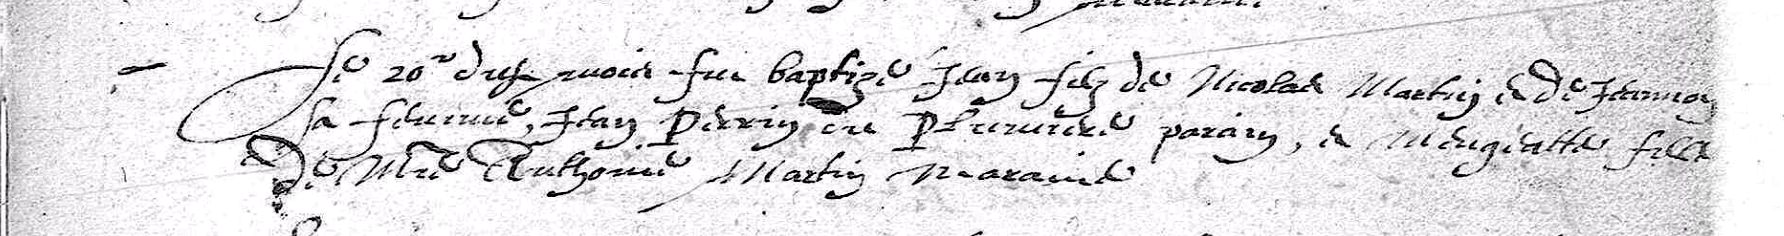 Le 20e dud mois fut baptizé Jean filz de Nicolas Martin & de Jannon
sa femme, Jean Perrin de Plumieres parain, & Mengeatte fille
de Mre Anthoine Martin Maraine